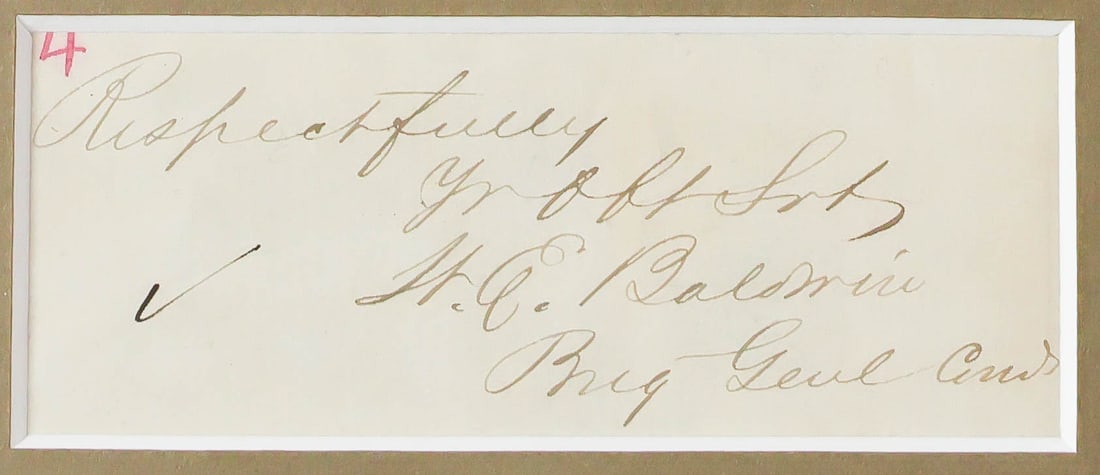 4
Respectfully
Yr Obt Srt
W. E. Baldwin
Brig Genl Comd